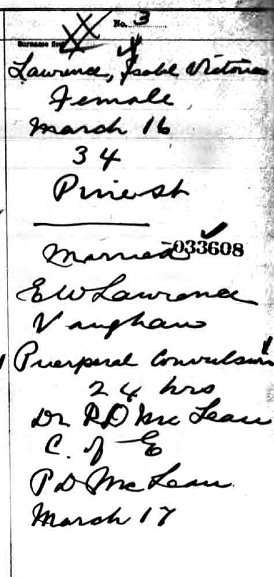 No. 3
Surname first
Lawrence, Isobel Victoria
Female
March 16
34
Pine st
Married
033608
E W Lawrence
Vaughan
Puerperal Convulsions
24 hrs
Dr P D McLean
C. of E
P D McLean
March 17